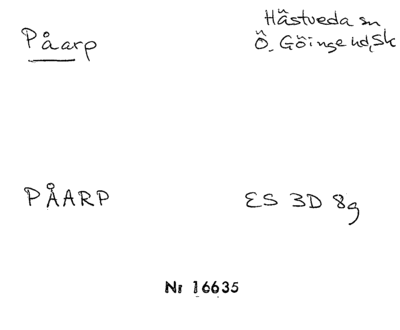 Påarp
Hästveda sn
Ö. Göinge hd, Sk
PÅARP
ES 3D 8g
Nr 16635